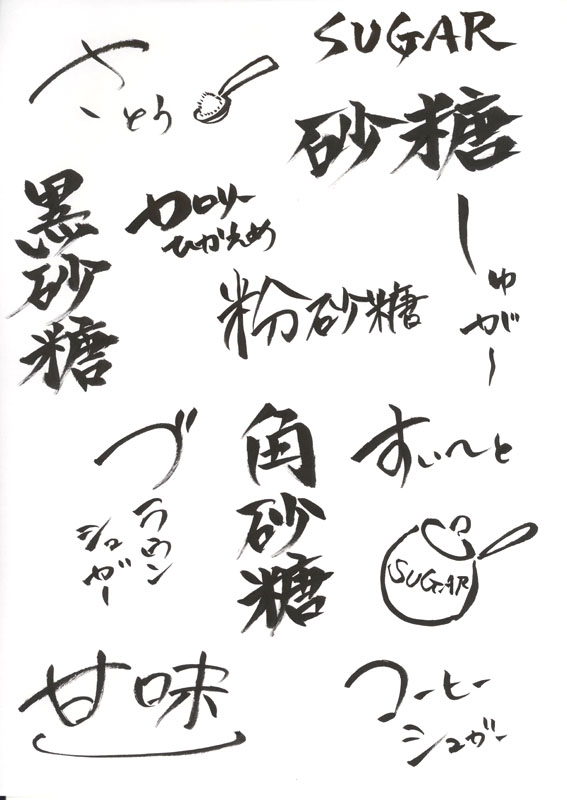 さとう
SUGAR
砂糖
黒砂糖
カロリー
ひかえめ
粉砂糖
しゅがー
ブラウン
シュガー
角砂糖
すいーと
SUGAR
甘味
コーヒー
シュガー